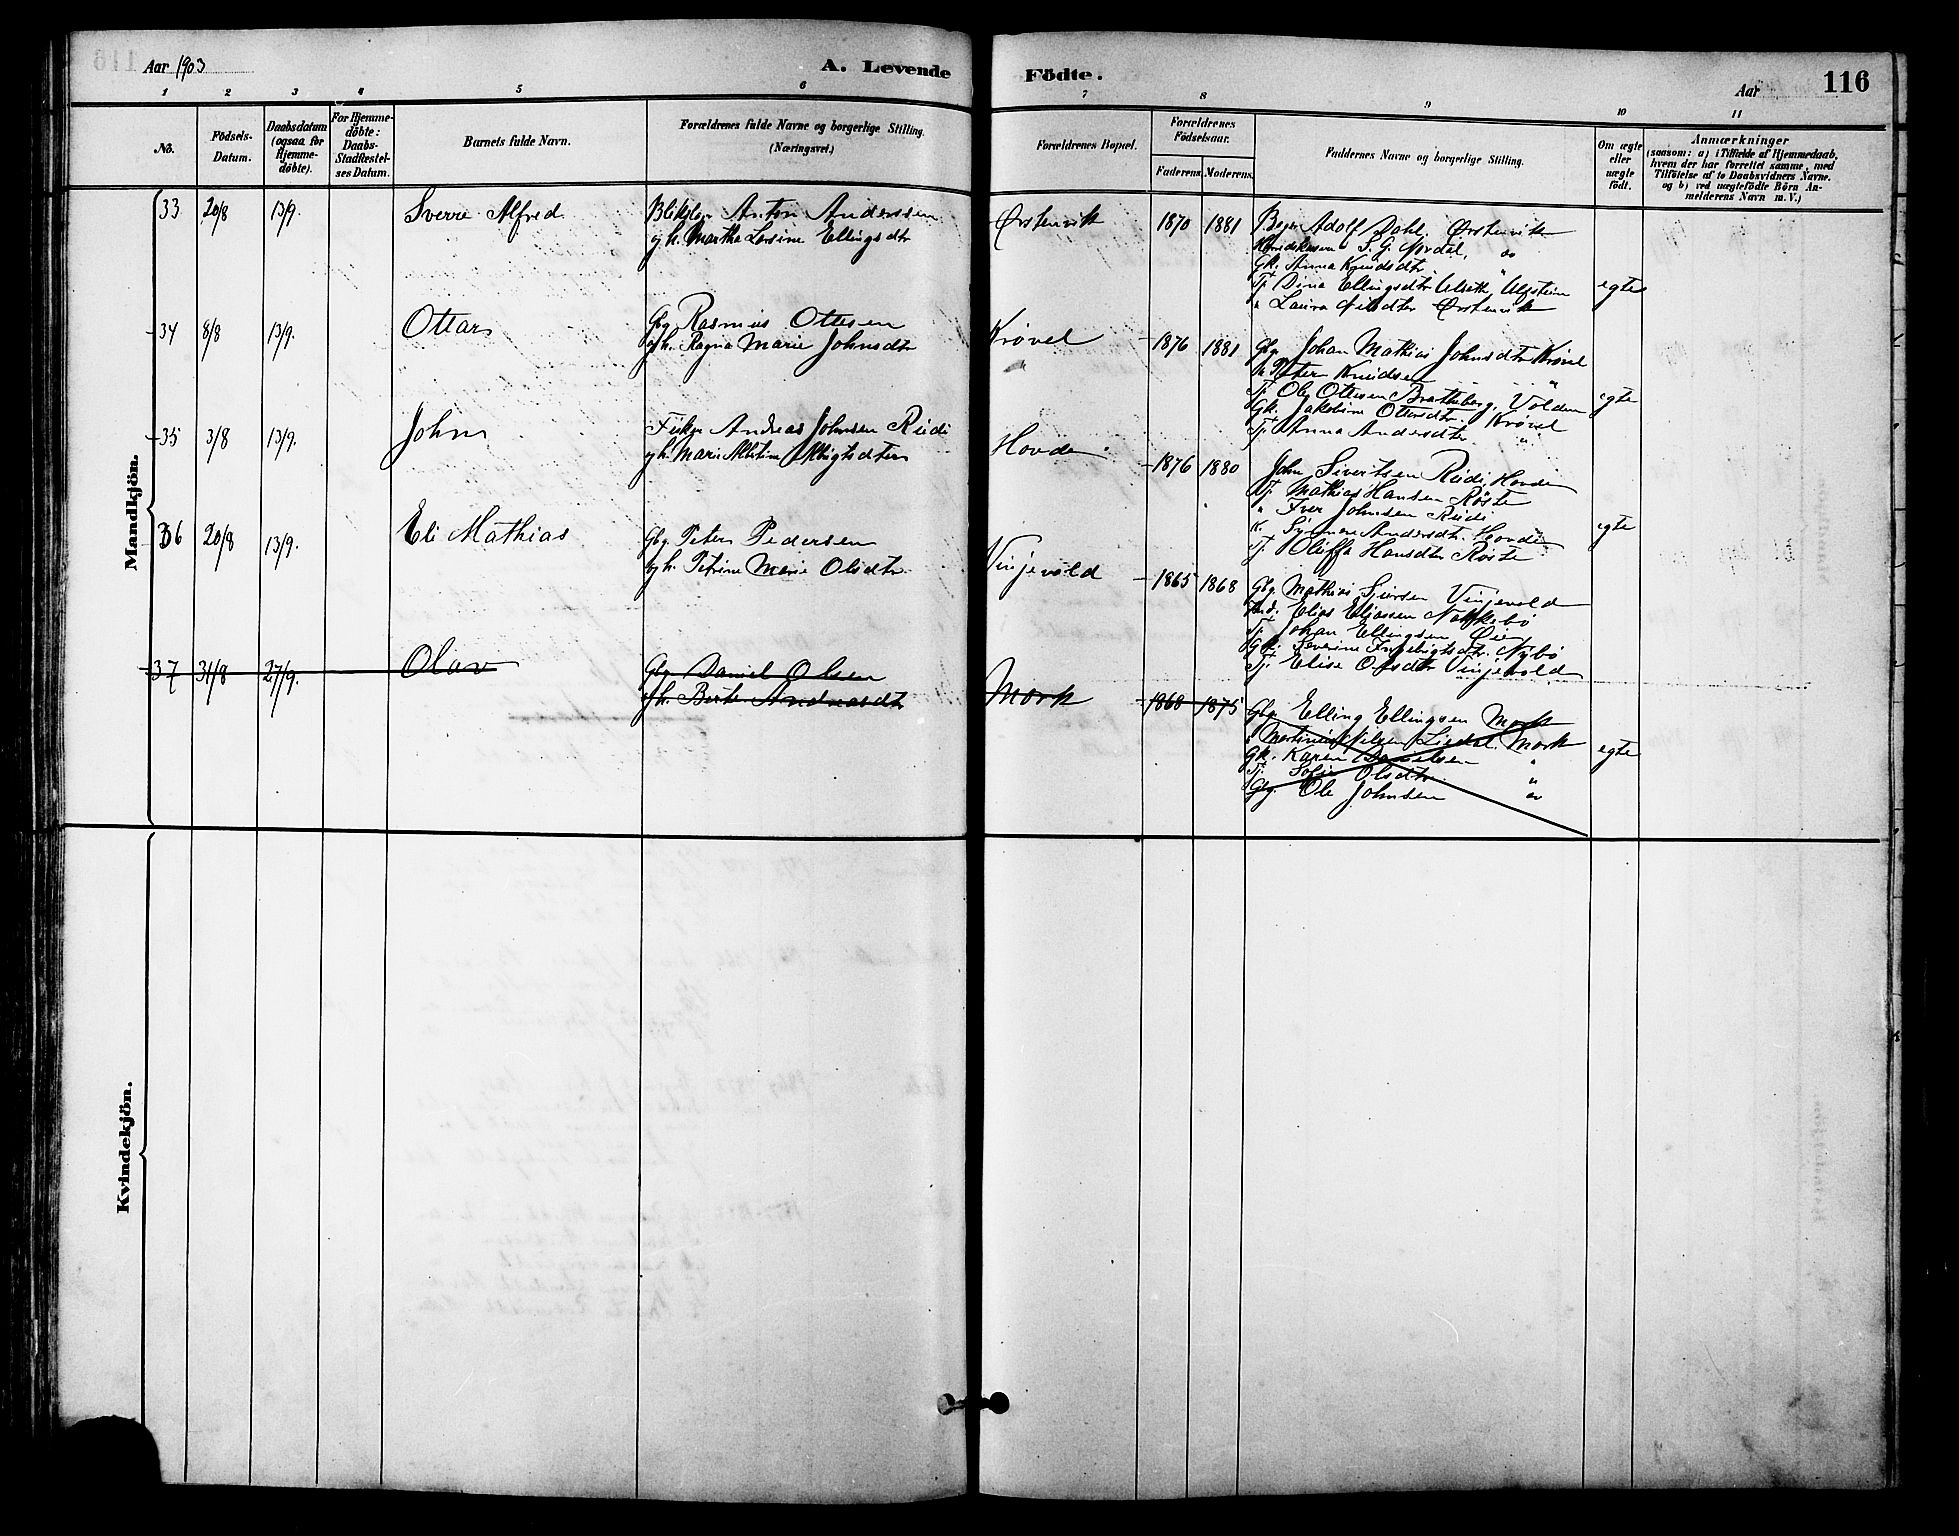 Aar 1903
A. Levende
Födte.
Aar
116
1 2 3 4 5 6 7 8 9 10 11
No.
Födsels-
Datum.
Daabsdatum
(ogsaa for
Hjemme-
döbte).
For Hjemme-
döbte:
Daabs-
Stadfæstel-
ses Datum.
Barnets fulde Navn.
Forældrenes fulde Navne og borgerlige Stilling.
(Næringsvei.)
Forældrenes Bopæl.
Forældrenes
Födselsaar.
Faderens. Moderens.
Faddernes Navne og borgerlige Stilling.
Om ægte
eller
uægte
födt.
Anmærkninger
(saasom: a) i Tilfælde af Hjemmedaab,
hvem der har forrettet samme, med
Tilföielse af to Daabsvidners Navne.
og b) ved uægtefödte Börn An-
melderens Navn m. V.)
Mandkjön.
33 20/8 13/9. Sverre Alfred
Anton Anderssen
gh. Martha Lovine Ellingsdtr
Ørstenvik 1870 1881
Adolf Dahl. Ørstenvik
S. G. Mordal, "
Gk. Anna Knudsdtr "
Tj. Dina Ellingsdtr Ulseth, Ulfstein
" Laura Ørstenvik
egte
34 8/8 13/9. Ottar
Gbg Rasmus Ottesen
gh. Ragna Marie Johnsdtr
Krøvel
"
1876 1881
Gbg Johan Mathias Johnsdtr Krøvel
Peter Knudsen "
Tj. Ole Ottesen Bratteberg, Volden
Gk. Jakobine Ottesdtr. Krøvel
Tj. Anna Andersdtr. "
egte
35 3/8 13/9. John
Andreas Johnsen Riidi
gh. Marie
Hovde 1876 1880
John Sivertsen Riidi, Hovde
Tj. Mathias Hansen Røste
" Iver Johnsen Riidi
K. Andersdtr. Hovde
Tj. Oliffa Hansdtr Røste
egte
36 20/8 13/9. Eli Mathias
Gbg. Peter Pedersen
gh. Petrine Marie Olsdtr.
Vinjevold 1865 1868
Gbg Mathias Sjursen Vinjevold
Elias Eliassen
Tj. Johan Ellingsen
Gk. Severine Nybø
Tj. Elise Olsdtr Vinjevold
37 31/8 27/9. Olav
Gbg. Daniel Olsen
gh. Berte Andreasdtr
Mork 1868 1875
Gbg. Elling Ellingsen Mork
" Martinus Nilsen Liadal. Mork
Gk. Karen Danielsen "
Tj. Sofie Olsdtr "
Gbg. Ole Johnsen "
egte
Kvindekjön.